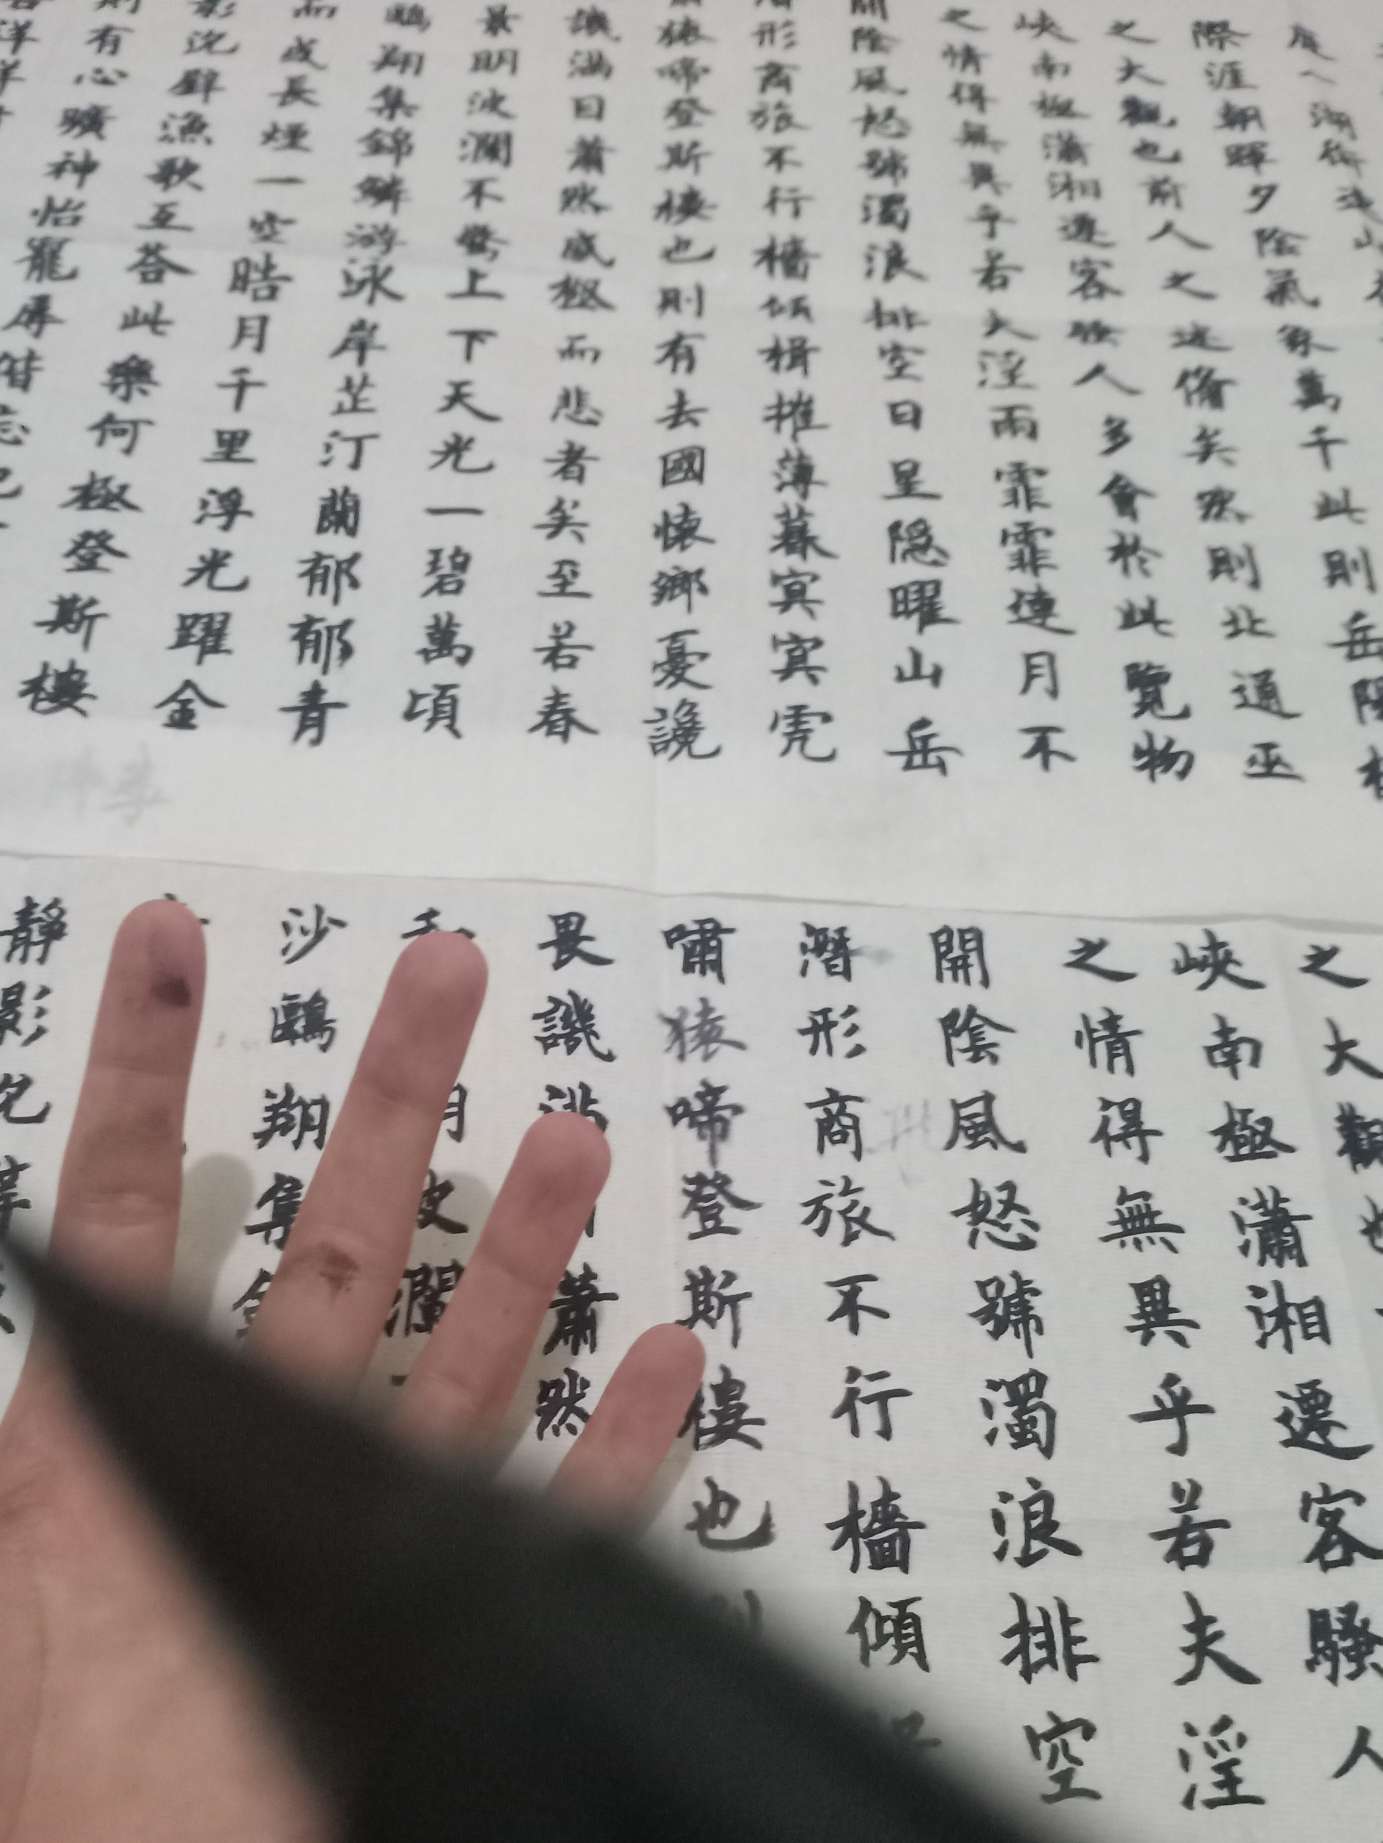 湖銜遠山
際涯朝暉夕陰氣象萬千此則岳陽樓
之大觀也前人之述備矣然則北通巫
峽南極瀟湘遷客騷人多會於此覽物
之情得無異乎若夫淫雨霏霏連月不
開陰風怒號濁浪排空日星隐曜山岳
形商旅不行檣傾楫摧薄暮冥冥虎
猿啼登斯樓也則有去國懷鄉憂讒
譏滿目蕭然感極而悲者矣至若春
景明波瀾不驚上下天光一碧萬頃
鷗翔集錦鱗游泳岸芷汀蘭郁郁青
而或長煙一空皓月千里浮光躍金
影沈璧漁歌互荅此樂何極登斯樓
則有心曠神怡寵辱偕忘
之大觀也
峽南極瀟湘遷客騷人
之情得無異乎若夫淫
開陰風怒號濁浪排空
潛形商旅不行檣傾
嘯猿啼登斯樓也
畏譏滿蕭然
波瀾
沙鷗翔集
靜影沈璧